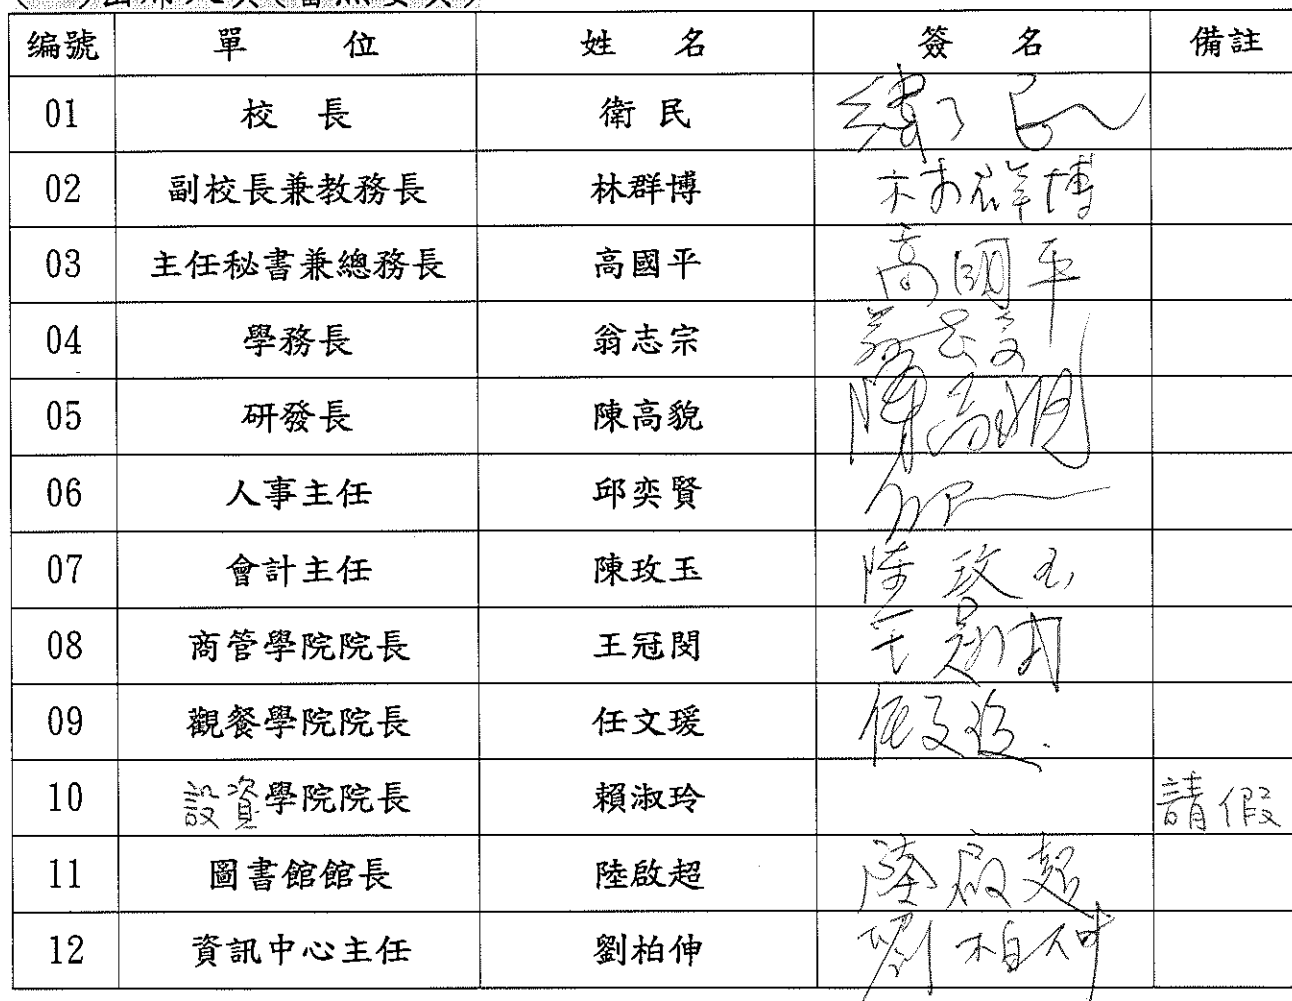 編號 單位 姓名 簽名 備註
01 校長 衛民 衛民
02 副校長兼教務長 林群博 林群博
03 主任秘書兼總務長 高國平 高國平
04 學務長 翁志宗 翁志宗
05 研發長 陳高貌 陳高貌
06 人事主任 邱奕賢
07 會計主任 陳玫玉 陳玫玉
08 商管學院院長 王冠閔 王冠閔
09 觀餐學院院長 任文瑗 任文瑗
10 設資學院院長 賴淑玲 請假
11 圖書館館長 陸啟超 陸啟超
12 資訊中心主任 劉柏伸 劉柏伸